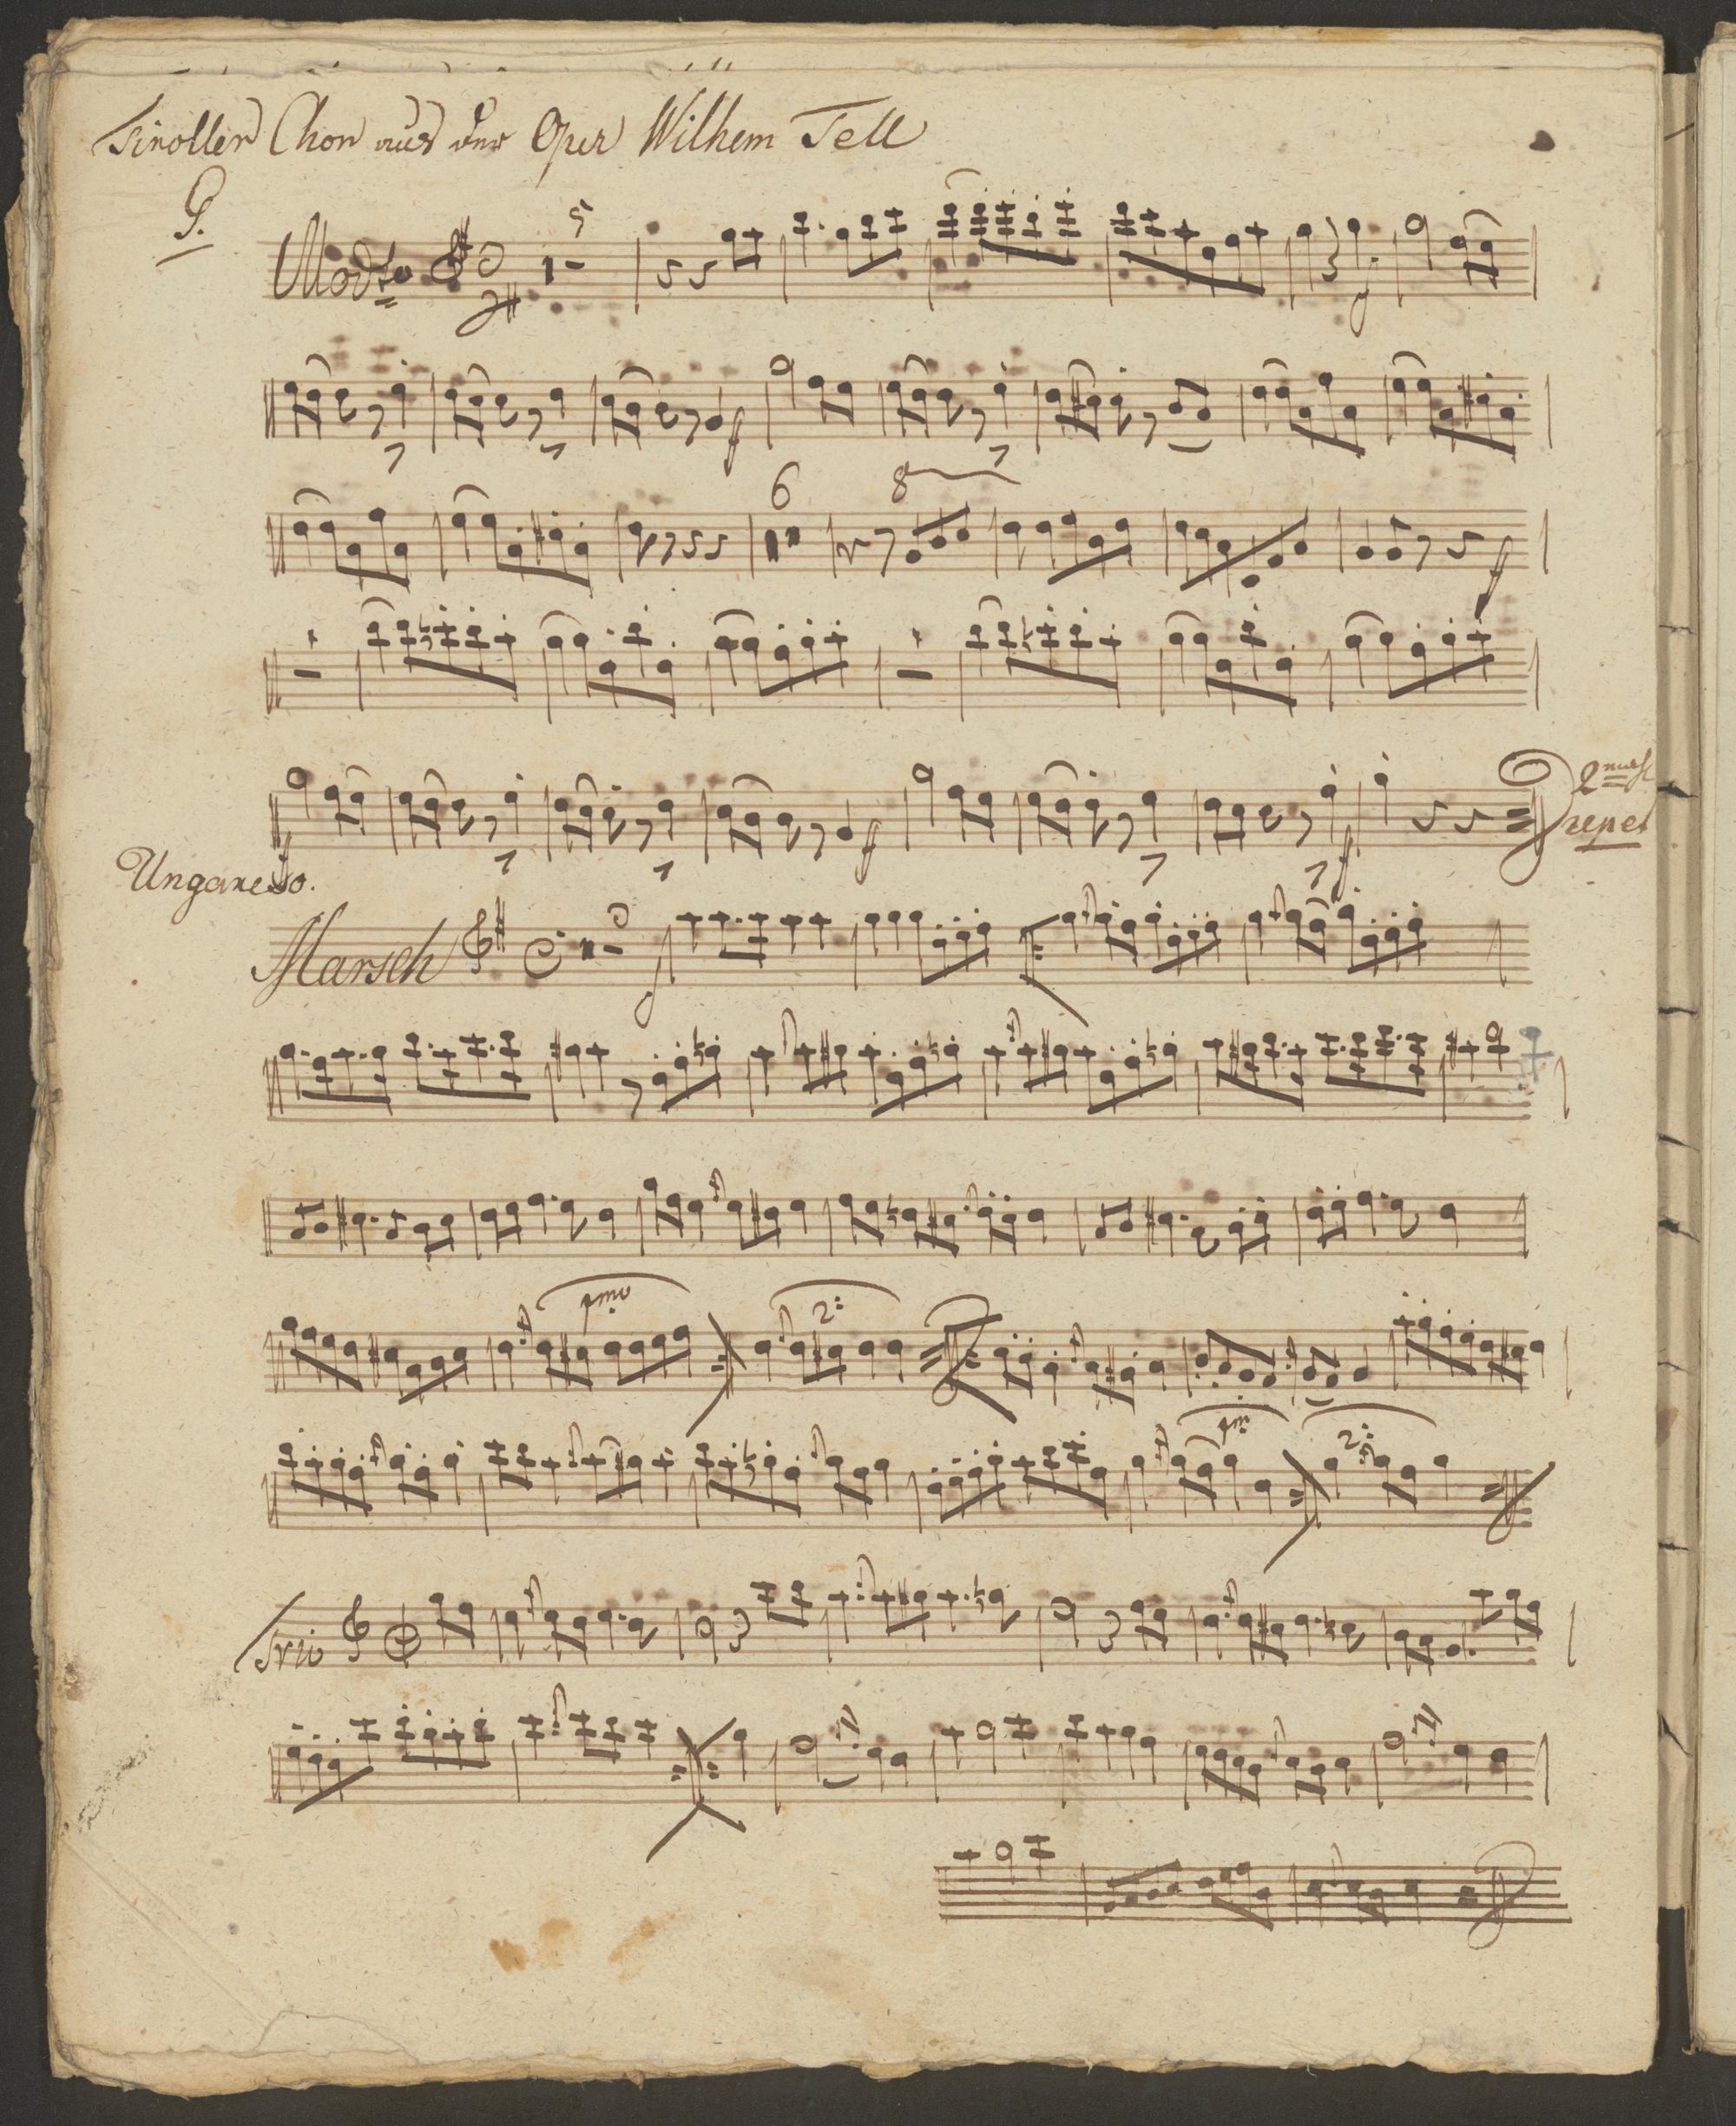 Tiroller Chor aus der Oper Wilhem Tell
G.
Modto
5
6
8
2mahl
repet
Ungareso.
Marsch
pmo
2:
pm
2:
Trio